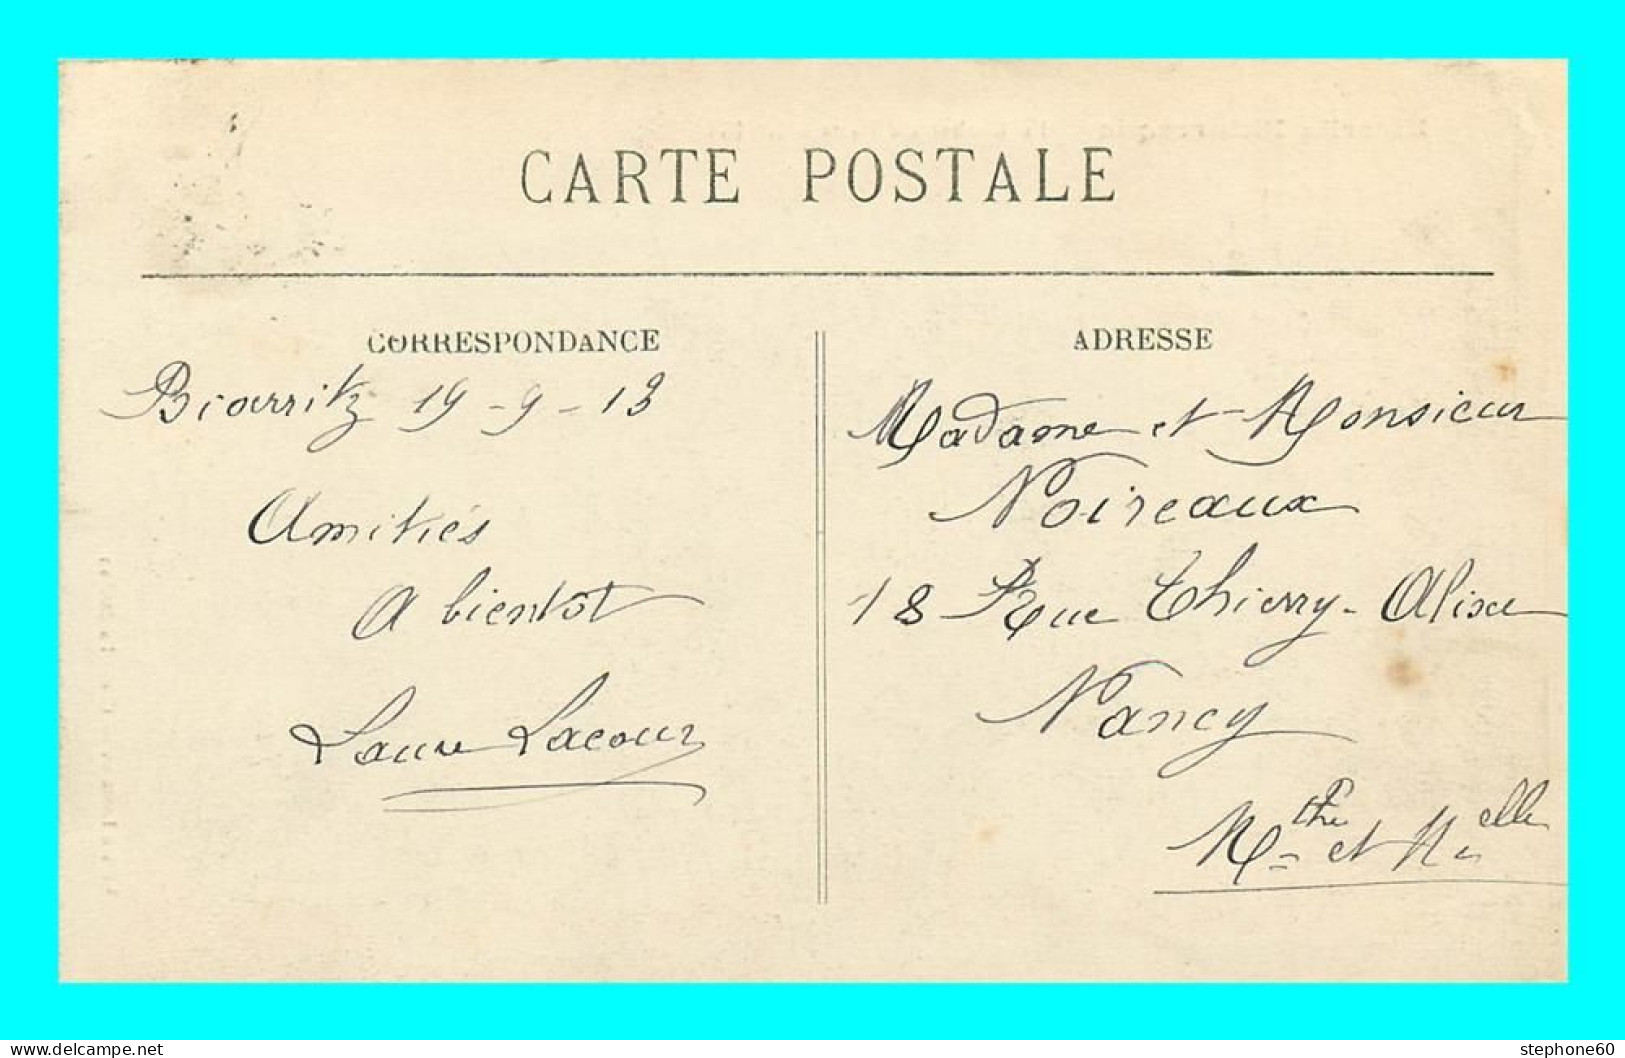 CARTE POSTALE
CORRESPONDANCE
Biarritz 19-9-13
Amitiés
A bientôt
Laure Lacour
ADRESSE
Madame et Monsieur
Noireaux
18 Rue Thierry-Alix
Nancy
Mthe et Melle
www.delcampe.net
stephone60